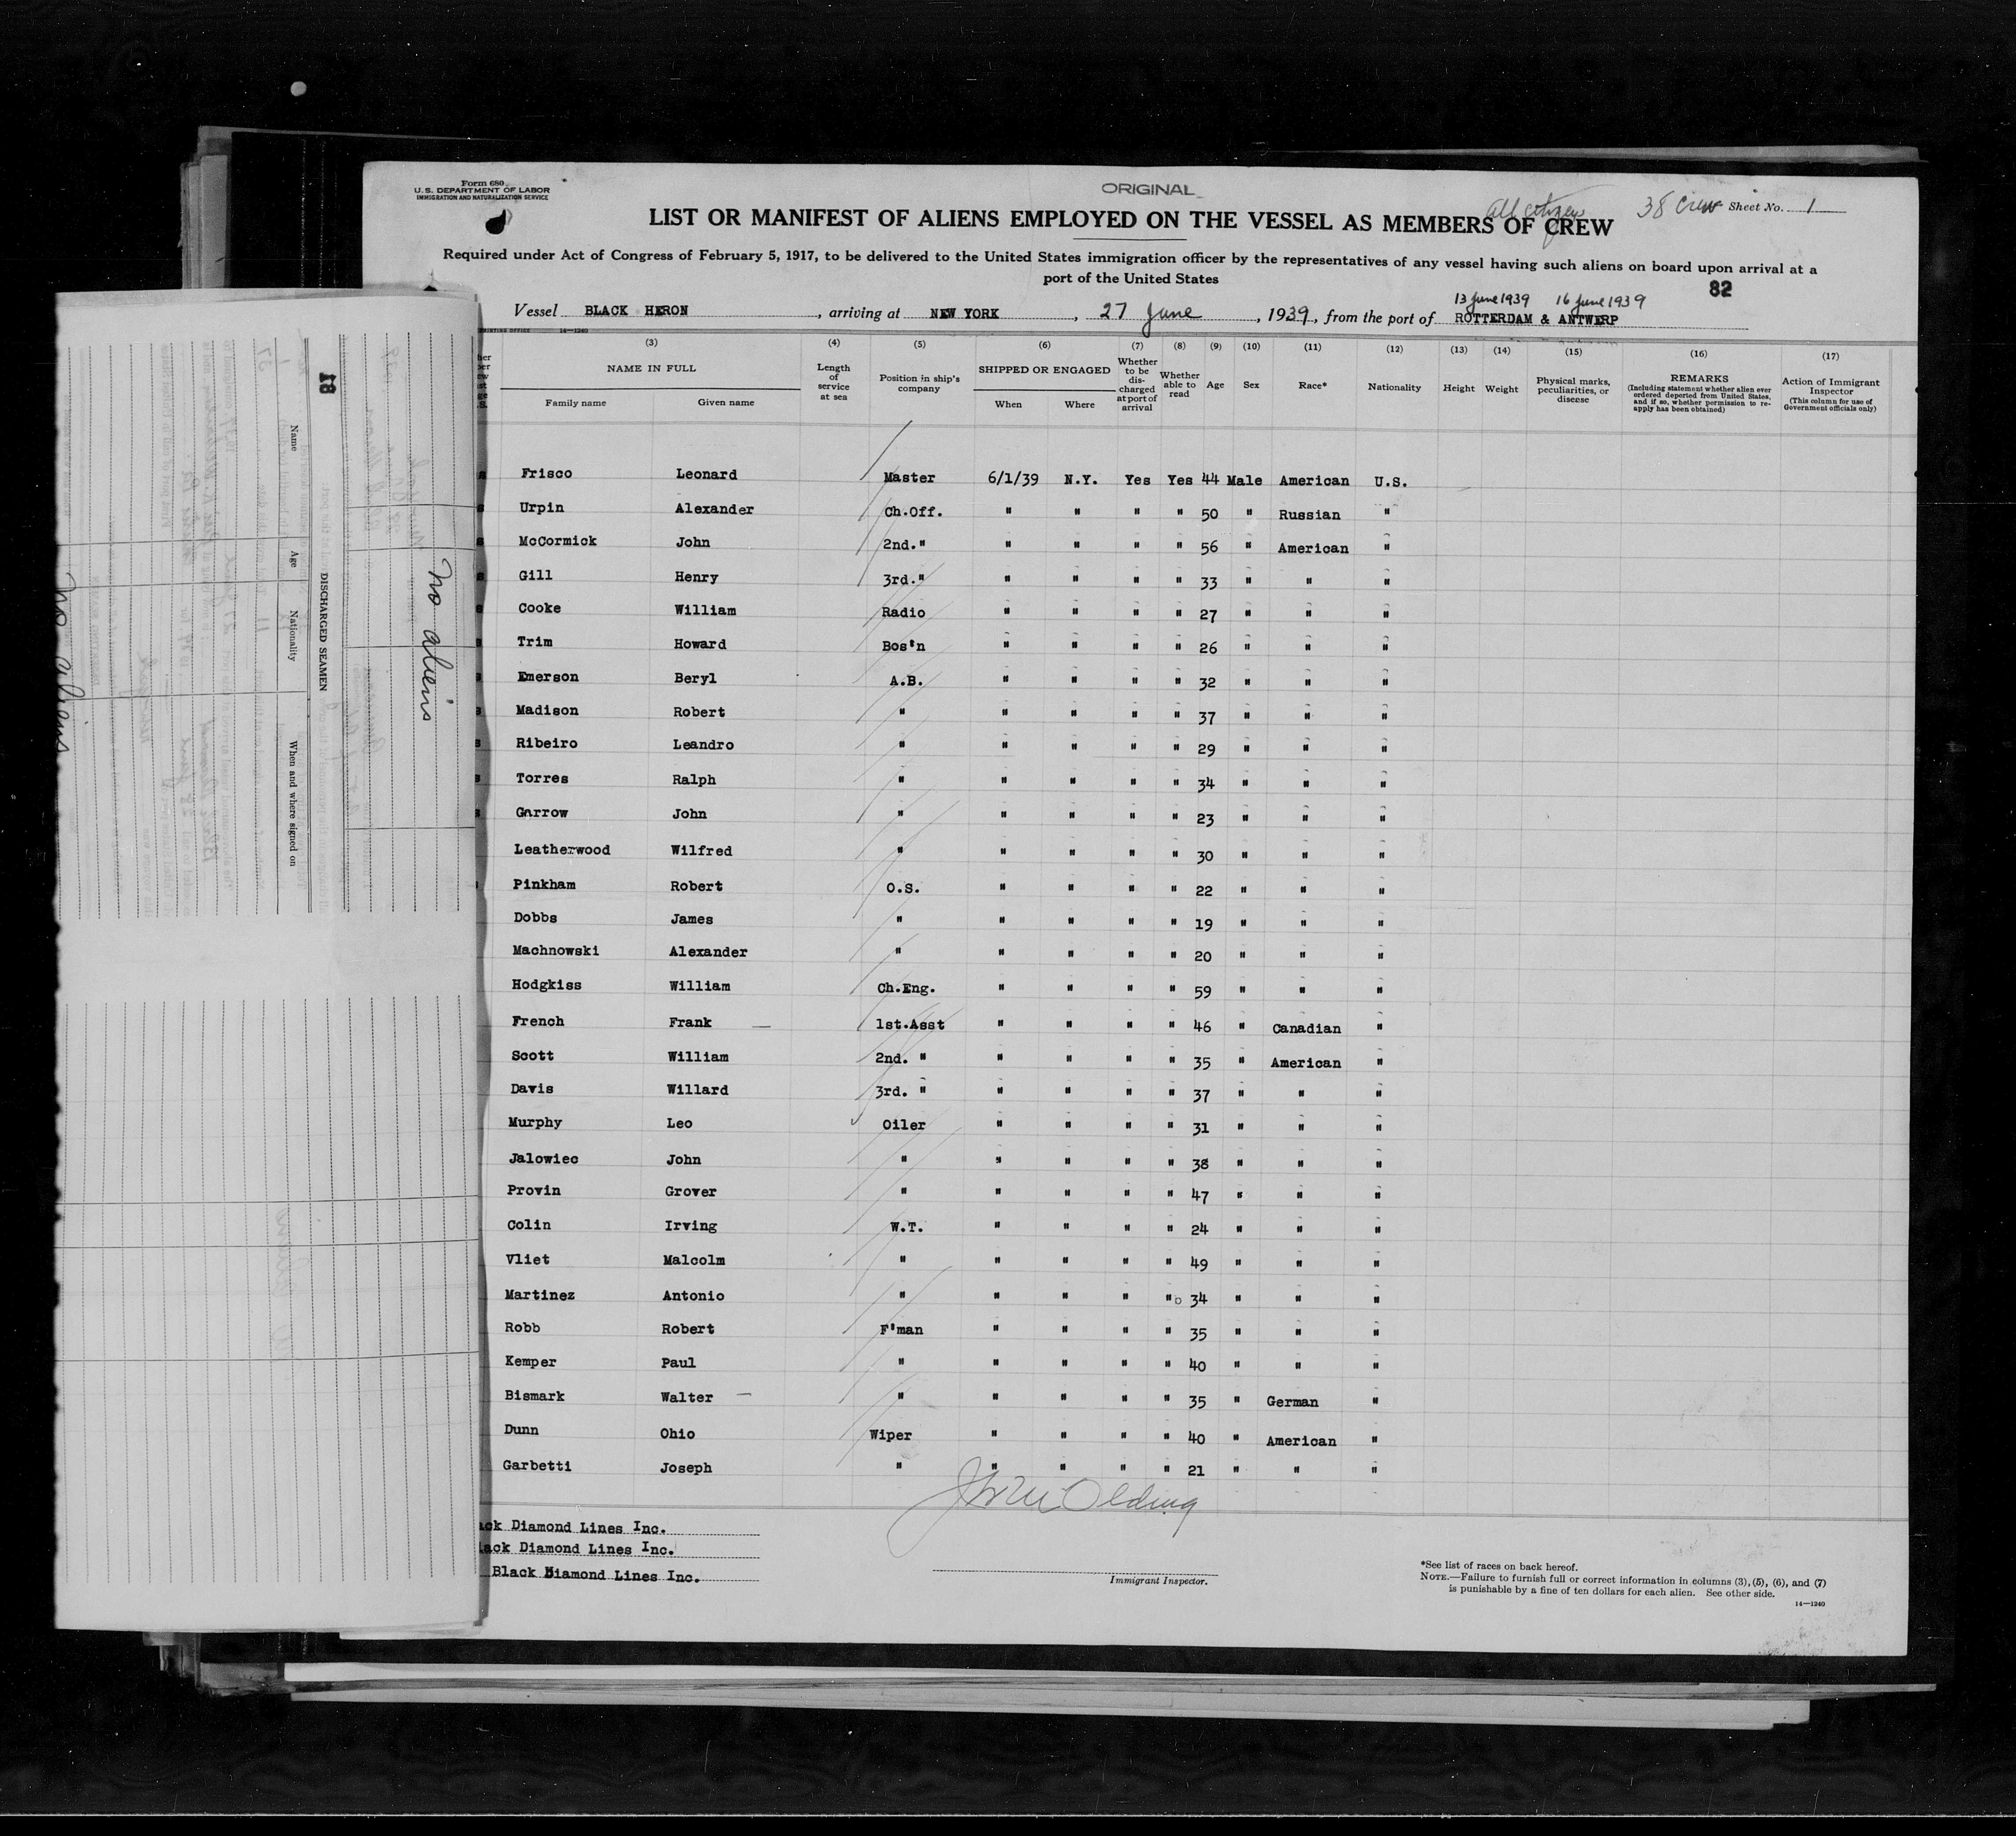 Form 680
U. S. DEPARTMENT OF LABOR
IMMIGRATION AND NATURALIZATION SERVICE
ORIGINAL
all citizens 38 Crew Sheet No. 1
LIST OR MANIFEST OF ALIENS EMPLOYED ON THE VESSEL AS MEMBERS OF CREW
Required under Act of Congress of February 5, 1917, to be delivered to the United States immigration officer by the representatives of any vessel having such aliens on board upon arrival at a
port of the United States
82
13 June 1939 16 June 1939
Vessel BLACK HERON, arriving at NEW YORK, 27 June, 1939, from the port of ROTTERDAM & ANTWERP
PRINTING OFFICE 14—1240
(3) (4) (5) (6) (7) (8) (9) (10) (11) (12) (13) (14) (15) (16) (17)
NAME IN FULL
Family name Given name
Length of service at sea
Position in ship's company
SHIPPED OR ENGAGED
When Where
Whether to be discharged at port of arrival
Whether able to read
Age
Sex
Race*
Nationality
Height
Weight
Physical marks, peculiarities, or disease
REMARKS
(Including statement whether alien ever ordered deported from United States, and if so, whether permission to reapply has been obtained)
Action of Immigrant Inspector
(This column for use of Government officials only)
Frisco Leonard Master 6/1/39 N.Y. Yes Yes 44 Male American U.S.
Urpin Alexander Ch.Off. " " " " 50 " Russian "
McCormick John 2nd." " " " " 56 " American "
Gill Henry 3rd." " " " " 33 " " "
Cooke William Radio " " " " 27 " " "
Trim Howard Bos'n " " " " 26 " " "
Emerson Beryl A.B. " " " " 32 " " "
Madison Robert " " " " " 37 " " "
Ribeiro Leandro " " " " " 29 " " "
Torres Ralph " " " " " 34 " " "
Garrow John " " " " " 23 " " "
Leatherwood Wilfred " " " " " 30 " " "
Pinkham Robert O.S. " " " " 22 " " "
Dobbs James " " " " " 19 " " "
Machnowski Alexander " " " " " 20 " " "
Hodgkiss William Ch.Eng. " " " " 59 " " "
French Frank — 1st.Asst " " " " 46 " Canadian "
Scott William 2nd. " " " " " 35 " American "
Davis Willard 3rd. " " " " " 37 " " "
Murphy Leo Oiler " " " " 31 " " "
Jalowiec John " " " " " 38 " " "
Provin Grover " " " " " 47 " " "
Colin Irving W.T. " " " " 24 " " "
Vliet Malcolm " " " " " 49 " " "
Martinez Antonio " " " " " 34 " " "
Robb Robert F'man " " " " 35 " " "
Kemper Paul " " " " " 40 " " "
Bismark Walter — " " " " " 35 " German "
Dunn Ohio Wiper " " " " 40 " American "
Garbetti Joseph " " " " " 21 " " "
ack Diamond Lines Inc.
lack Diamond Lines Inc.
Black Diamond Lines Inc.
Immigrant Inspector.
*See list of races on back hereof.
NOTE.—Failure to furnish full or correct information in columns (3), (5), (6), and (7)
is punishable by a fine of ten dollars for each alien. See other side.
14—1240
81
DISCHARGED SEAMEN
Name Age Nationality When and where signed on
No aliens
No aliens